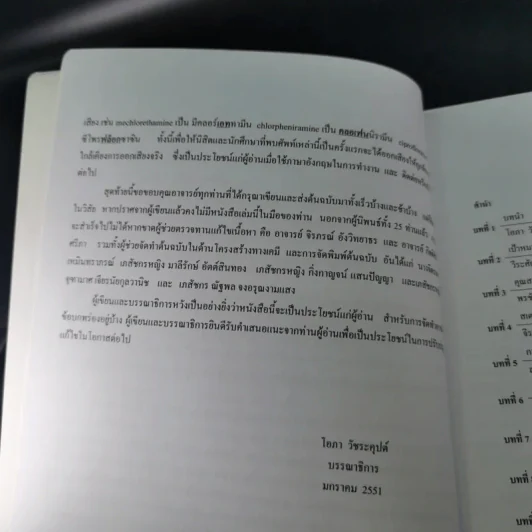 เสียง เช่น mechlorethamine เป็น มีคลอร์เอททามีน chlorpheniramine เป็น คลอเฟนนิรามีน
ซิโพรฟล็อกซาซิน ทั้งนี้เพื่อให้นิสิตและนักศึกษาที่พบศัพท์เหล่านี้เป็นครั้งแรกจะได้ออกเสียงให้
ใกล้เคียงการออกเสียงจริง ซึ่งเป็นประโยชน์แก่ผู้อ่านเมื่อใช้ภาษาอังกฤษในการทำงาน และ
ต่อไป
สุดท้ายนี้ขอขอบคุณอาจารย์ทุกท่านที่ได้กรุณาเขียนและส่งต้นฉบับมาทั้งเร็วบ้างและช้าบ้าง
ในวิสัย หากปราศจากผู้เขียนแล้วคงไม่มีหนังสือเล่มนี้ในมือของท่าน นอกจากผู้นิพนธ์ทั้ง 25 ท่านแล้ว
จะสำเร็จไปไม่ได้หากขาดผู้ช่วยตรวจทานแก้ไขเนื้อหา คือ อาจารย์ จิรภรณ์ อังวิทยาธร และ อาจารย์
ศรีภา รวมทั้งผู้ช่วยจัดทำต้นฉบับในด้านโครงสร้างทางเคมี และการจัดพิมพ์ต้นฉบับ อันได้แก่
เหมินทราภรณ์ เภสัชกรหญิง มาลีรักษ์ อัตต์สินทอง เภสัชกรหญิง กิ่งกาญจน์ แสนปัญญา และเภสัชกร
จุฑามาศ เจียรนัยกุลวานิช และ เภสัชกร ณัฐพล จงอรุณงามแสง
ผู้เขียนและบรรณาธิการหวังเป็นอย่างยิ่งว่าหนังสือนี้จะเป็นประโยชน์แก่ผู้อ่าน สำหรับการจัดทำ
ข้อบกพร่องอยู่บ้าง ผู้เขียนและบรรณาธิการยินดีรับคำเสนอแนะจากท่านผู้อ่านเพื่อเป็นประโยชน์ในการปรับปรุง
แก้ไขในโอกาสต่อไป
โอภา วัชระคุปต์
บรรณาธิการ
มกราคม 2551
คำนำ
บทที่ 1 บทนำ
โอภา
บทที่ 2
บทที่ 3
บทที่ 4
บทที่ 5
บทที่ 6
บทที่ 7
บทที่
บทที่